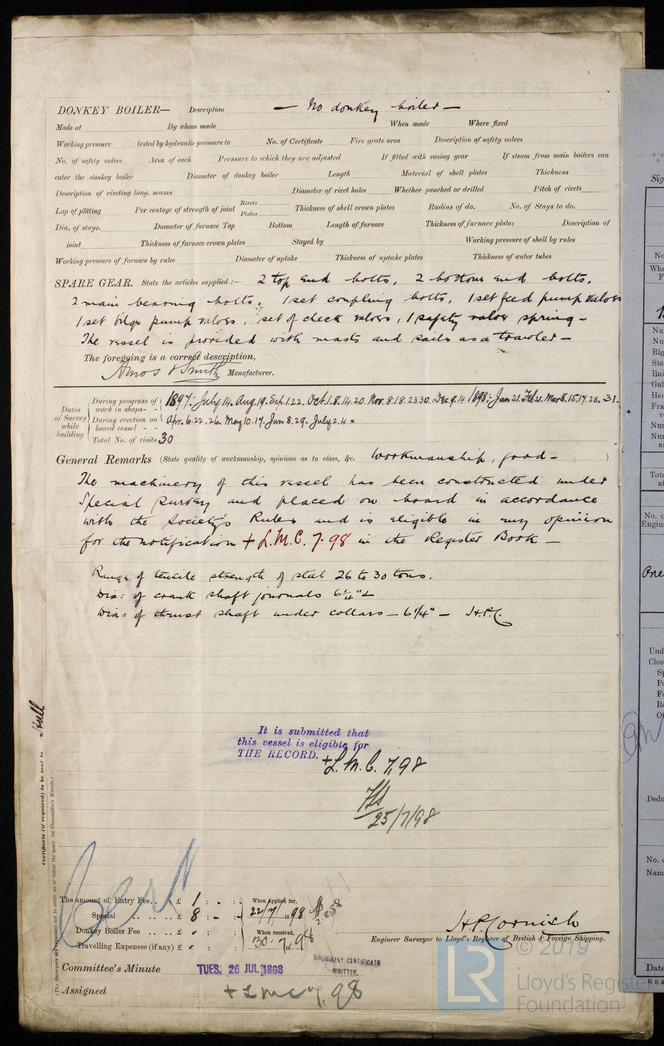 DONKEY BOILER— Description — No donkey boiler —
Made at By whom made When made Where fixed
Working pressure tested by hydraulic pressure to No. of Certificate Fire grate area Description of safety valves
No. of safety valves Area of each Pressure to which they are adjusted If fitted with easing gear If steam from main boilers can
enter the donkey boiler Diameter of donkey boiler Length Material of shell plates Thickness
Description of riveting long. seams Diameter of rivet holes Whether punched or drilled Pitch of rivets
Lap of plating Per centage of strength of joint Rivets Plates Thickness of shell crown plates Radius of do. No. of Stays to do.
Dia. of stays. Diameter of furnace Top Bottom Length of furnace Thickness of furnace plates Description of
joint Thickness of furnace crown plates Stayed by Working pressure of shell by rules
Working pressure of furnace by rules Diameter of uptake Thickness of uptake plates Thickness of water tubes
SPARE GEAR. State the articles supplied:— 2 top end bolts, 2 bottom end bolts,
2 main bearing bolts, 1 set coupling bolts, 1 set feed pump valves
1 set bilge pump valves, set of check valves, 1 safety valve spring —
The vessel is provided with masts and sails as a trawler —
The foregoing is a correct description,
Amos & Smith Manufacturer.
Dates of Survey while building
During progress of work in shops-- 1897:- July 14. Aug. 19. Sep. 1.22. Oct. 1.8.14.20. Nov. 8.18.23.30. Dec. 9.14 1898:- Jan 21. Feb 21. Mar 8.15.17.23.31.
During erection on board vessel -- Apr. 6.22.26. May 10.17. Jun 8.29. July 2.4 =
Total No. of visits 30
General Remarks (State quality of workmanship, opinions as to class, &c. Workmanship, good— )
The machinery of this vessel has been constructed under
Special Survey and placed on board in accordance
with the Society's Rules and is eligible in my opinion
for the notification + L.M.C. 7.98 in the Register Book —
Range of tensile strength of steel 26 to 30 tons.
Dia: of crank shaft journals 6¼"
Dia: of thrust shaft under collars — 6¼" — H.P.C.
It is submitted that
this vessel is eligible for
THE RECORD. + L.M.C. 7.98
25/7/98
Certificate (if required) to be sent to Hull
The amount of Entry Fee. . £ 1 : - : When applied for,
Special . . . . £ 8 : - : 22/7/98
Donkey Boiler Fee . . . . £ When received,
Travelling Expenses (if any) £ 30.7.98
H.P. Cornish
Engineer Surveyor to Lloyd's Register of British & Foreign Shipping.
Committee's Minute TUES. 26 JUL 1898
MACHINERY CERTIFICATE
WRITTEN.
Assigned + L.M.C. 7.98
© 2019
LR
Lloyd's Register
Foundation